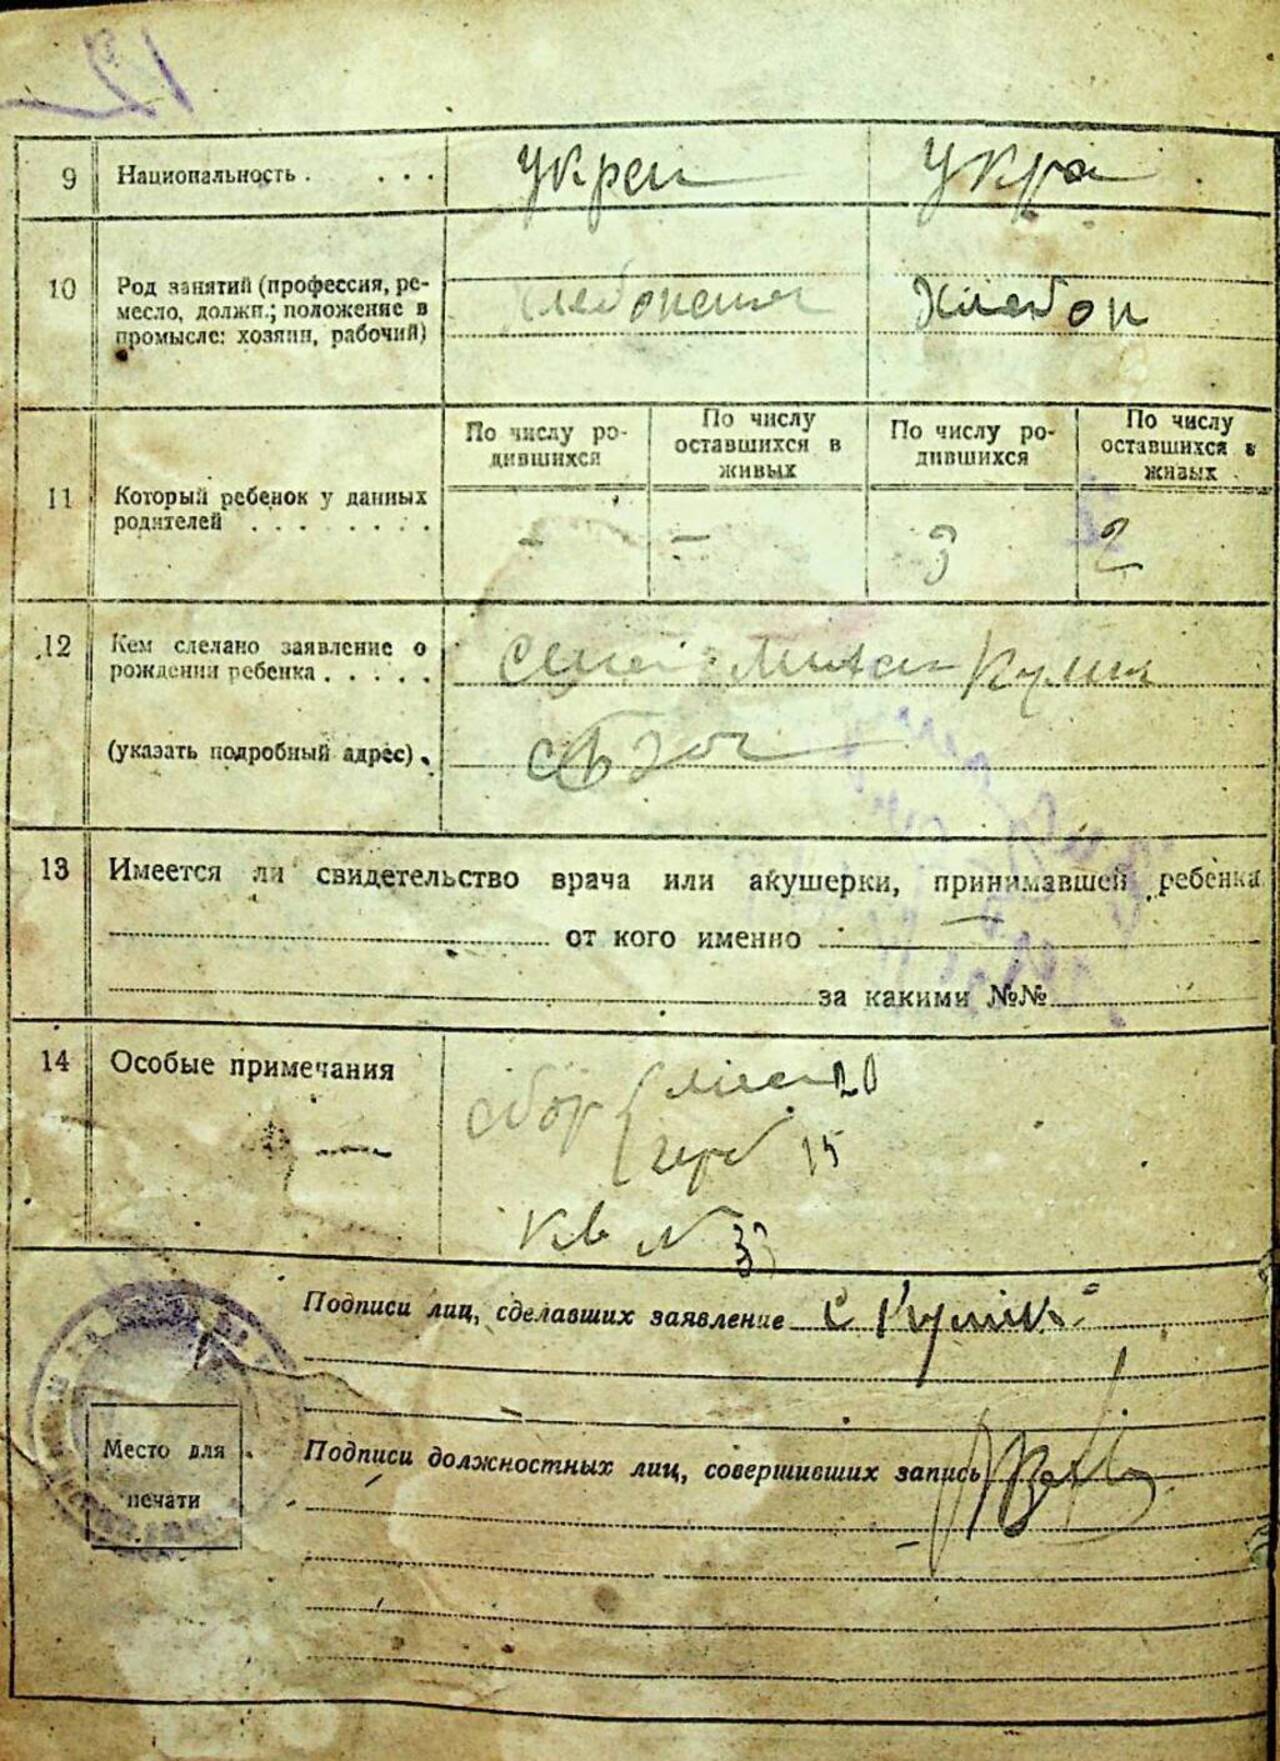 12
9 Национальность . . . . Украи Укра
10 Род занятий (профессия, ре-
месло, должн.; положение в
промысле: хозяин, рабочий)
Хлебопашн Хлебоп
11 Который ребенок у данных
родителей . . . . . . . .
По числу ро-
дившихся
По числу
оставшихся в
живых
По числу ро-
дившихся
По числу
оставшихся в
живых
- - 3 2
12 Кем сделано заявление о
рождении ребенка . . . . . Кулик
(указать подробный адрес) .
13 Имеется ли свидетельство врача или акушерки, принимавшей ребенка
от кого именно —
за какими №№
14 Особые примечания
сбор { мест 20
герб 15
кв N 33
Подписи лиц, сделавших заявление С Кулик
Подписи должностных лиц, совершивших запись
Место для
печати